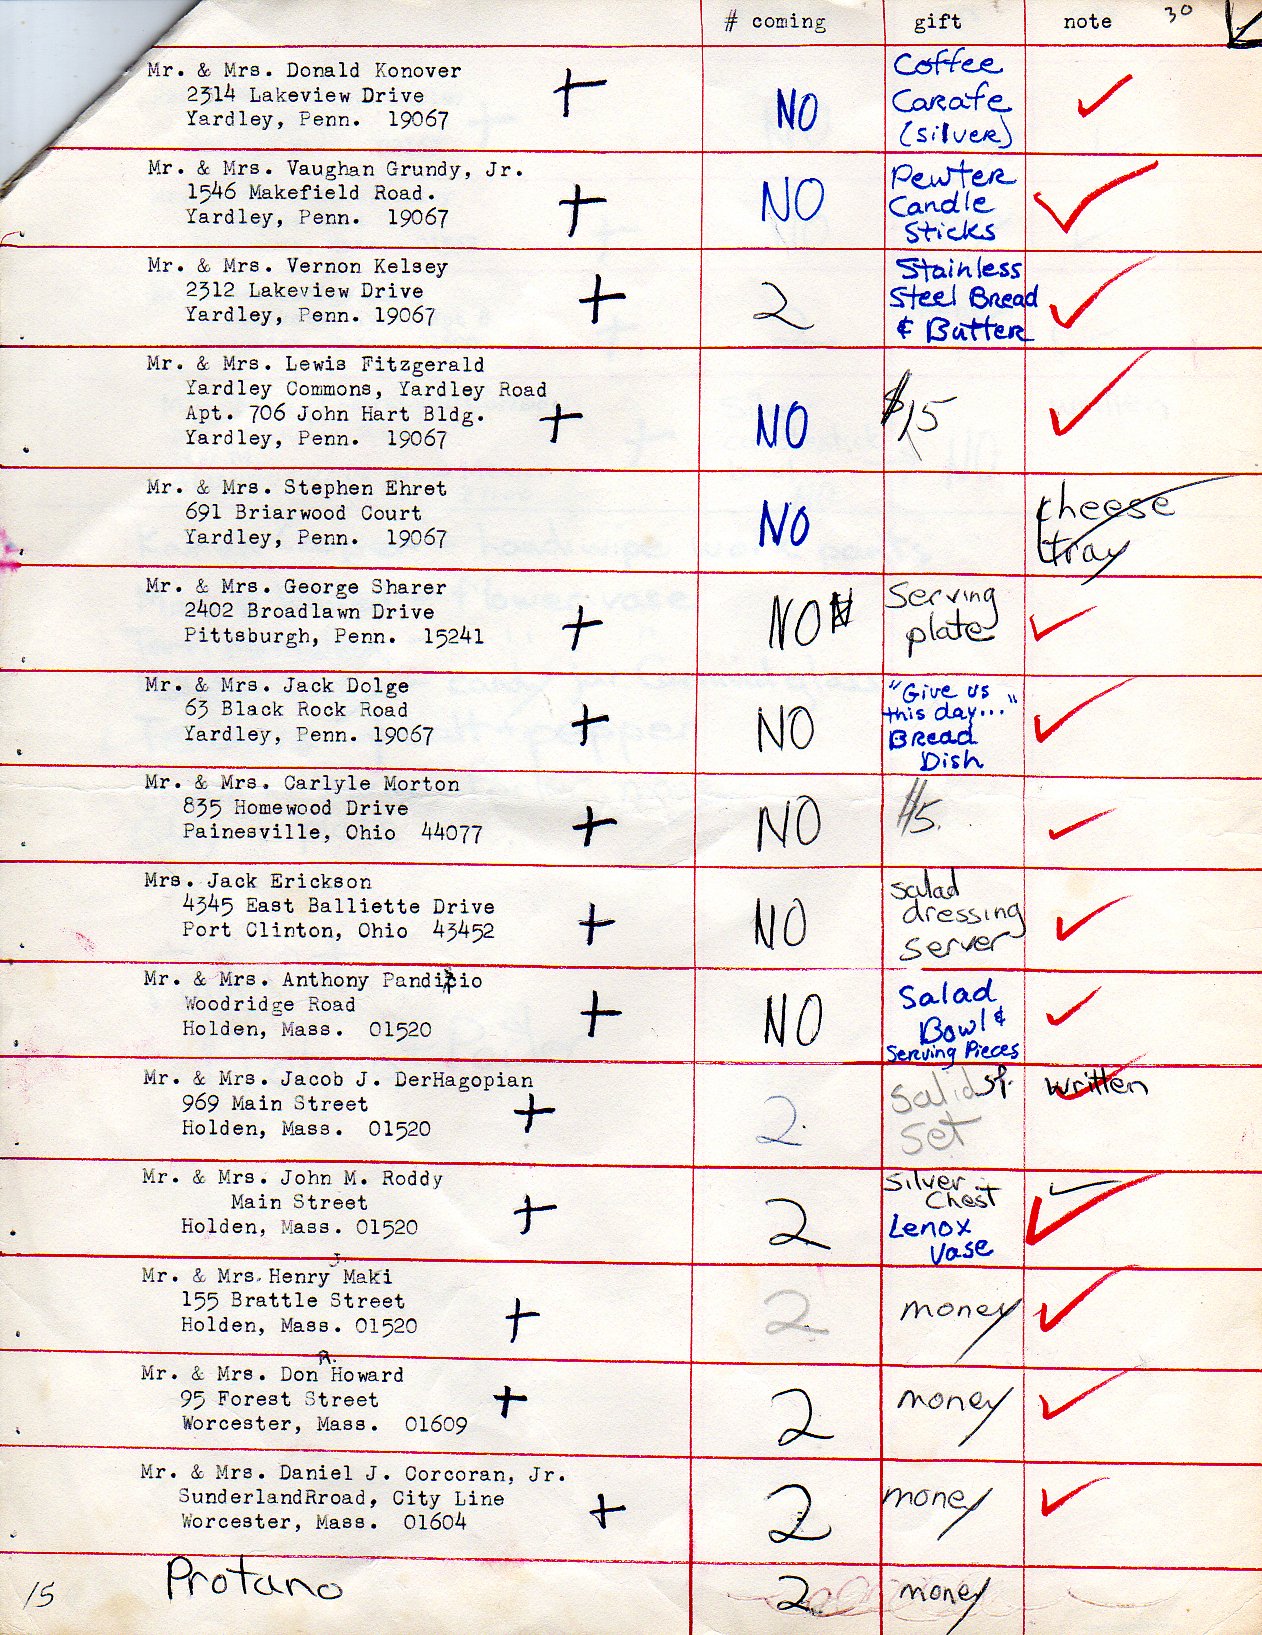 # coming gift note 30
Mr. & Mrs. Donald Konover
2314 Lakeview Drive
Yardley, Penn. 19067
NO
Coffee
Carafe
(silver)
Mr. & Mrs. Vaughan Grundy, Jr.
1546 Makefield Road.
Yardley, Penn. 19067
NO
Pewter
Candle
Sticks
Mr. & Mrs. Vernon Kelsey
2312 Lakeview Drive
Yardley, Penn. 19067
2
Stainless
Steel Bread
& Butter
Mr. & Mrs. Lewis Fitzgerald
Yardley Commons, Yardley Road
Apt. 706 John Hart Bldg.
Yardley, Penn. 19067
NO
$15
Mr. & Mrs. Stephen Ehret
691 Briarwood Court
Yardley, Penn. 19067
NO
cheese
tray
Mr. & Mrs. George Sharer
2402 Broadlawn Drive
Pittsburgh, Penn. 15241
NO
serving
plate
Mr. & Mrs. Jack Dolge
63 Black Rock Road
Yardley, Penn. 19067
NO
"Give us
this day..."
Bread
Dish
Mr. & Mrs. Carlyle Morton
835 Homewood Drive
Painesville, Ohio 44077
NO
$5.
Mrs. Jack Erickson
4345 East Balliette Drive
Port Clinton, Ohio 43452
NO
salad
dressing
server
Mr. & Mrs. Anthony Pandiscio
Woodridge Road
Holden, Mass. 01520
NO
Salad
Bowl &
Serving Pieces
Mr. & Mrs. Jacob J. DerHagopian
969 Main Street
Holden, Mass. 01520
2
salid sp.
set
written
Mr. & Mrs. John M. Roddy
Main Street
Holden, Mass. 01520
2
Silver
Chest
Lenox
Vase
Mr. & Mrs. Henry J Maki
155 Brattle Street
Holden, Mass. 01520
2
money
Mr. & Mrs. Don R. Howard
95 Forest Street
Worcester, Mass. 01609
2
money
Mr. & Mrs. Daniel J. Corcoran, Jr.
SunderlandRroad, City Line
Worcester, Mass. 01604
2
money
15
Protano
2
money